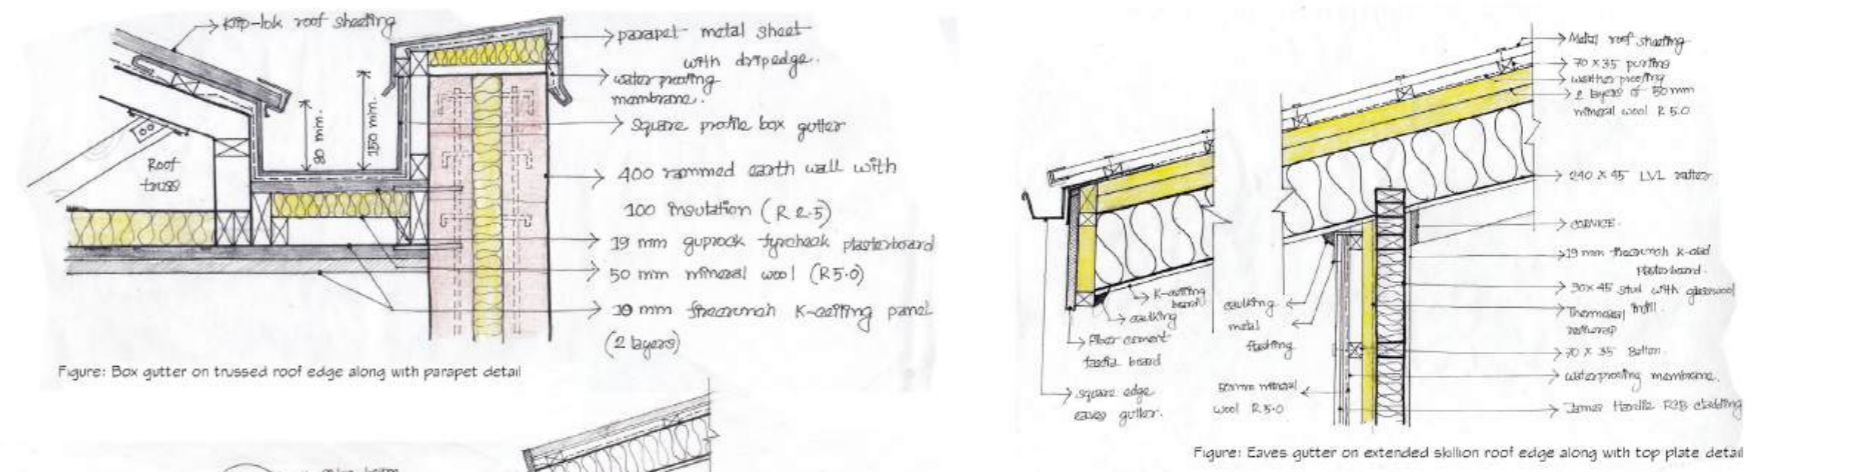 Klip-lok roof sheeting
parapet metal sheet
with dripedge.
waterproofing
membrane.
Square profile box gutter
30 mm.
150 mm.
Roof
truss
400 rammed earth wall with
100 insulation (R 2.5)
19 mm guprock fyrcheck plasterboard
50 mm mineral wool (R5.0)
19 mm K-ceiling panel
(2 layers)
Figure: Box gutter on trussed roof edge along with parapet detail
Metal roof sheeting
70 x 35 purling
weather proofing
2 layers of 50 mm
mineral wool R 5.0
240 x 45 LVL rafter
CORNICE.
19 mm K-clad
Plasterboard.
90x 45 stud with glasswool
infill.
Thermoseal
70 x 35 Batton.
waterproofing membrane.
James Hardie cladding
K-ceiling
board
caulking
Fiber cement
fascia board
square edge
eaves gutter.
caulking
metal
flashing
50mm mineral
wool R 5.0
Figure: Eaves gutter on extended skillion roof edge along with top plate detail